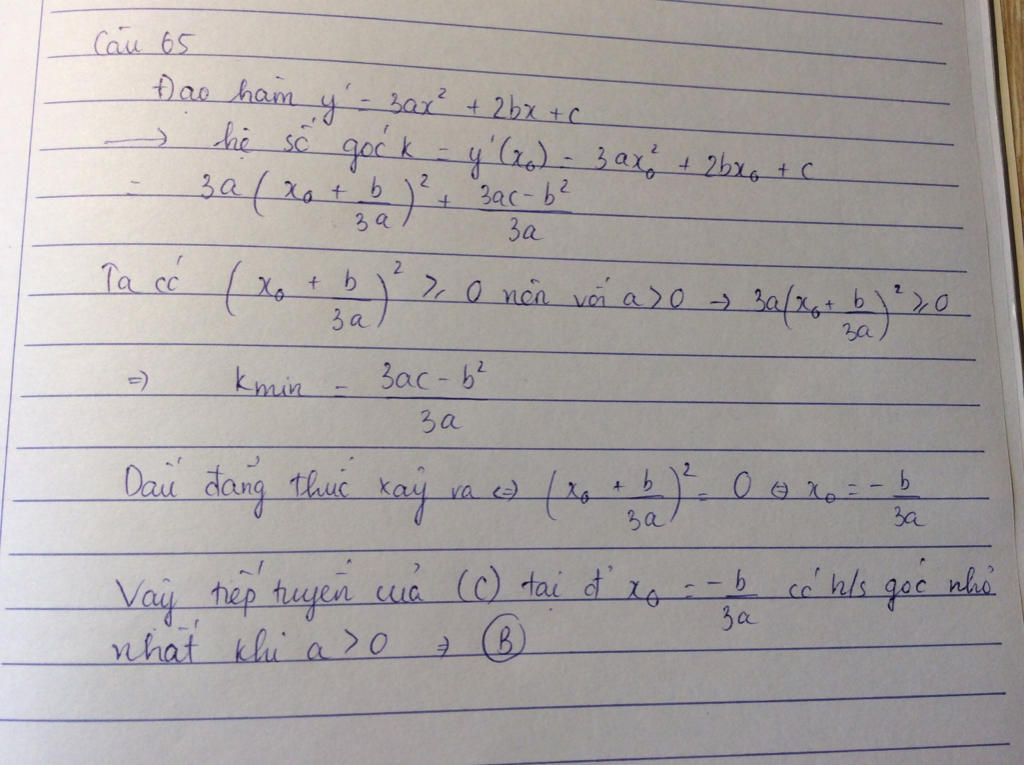 Câu 65
Đạo hàm y' = 3ax² + 2bx + c
→ hệ số góc k = y'(x₀) = 3ax₀² + 2bx₀ + c
= 3a(x₀ + b/3a)² + (3ac - b²)/3a
Ta có (x₀ + b/3a)² ≥ 0 nên với a > 0 → 3a(x₀ + b/3a)² ≥ 0
⇒ kmin = (3ac - b²)/3a
Dấu đẳng thức xảy ra ⇔ (x₀ + b/3a)² = 0 ⇔ x₀ = -b/3a
Vậy tiếp tuyến của (C) tại đ' x₀ = -b/3a có h/s góc nhỏ
nhất khi a > 0 ⇒ B